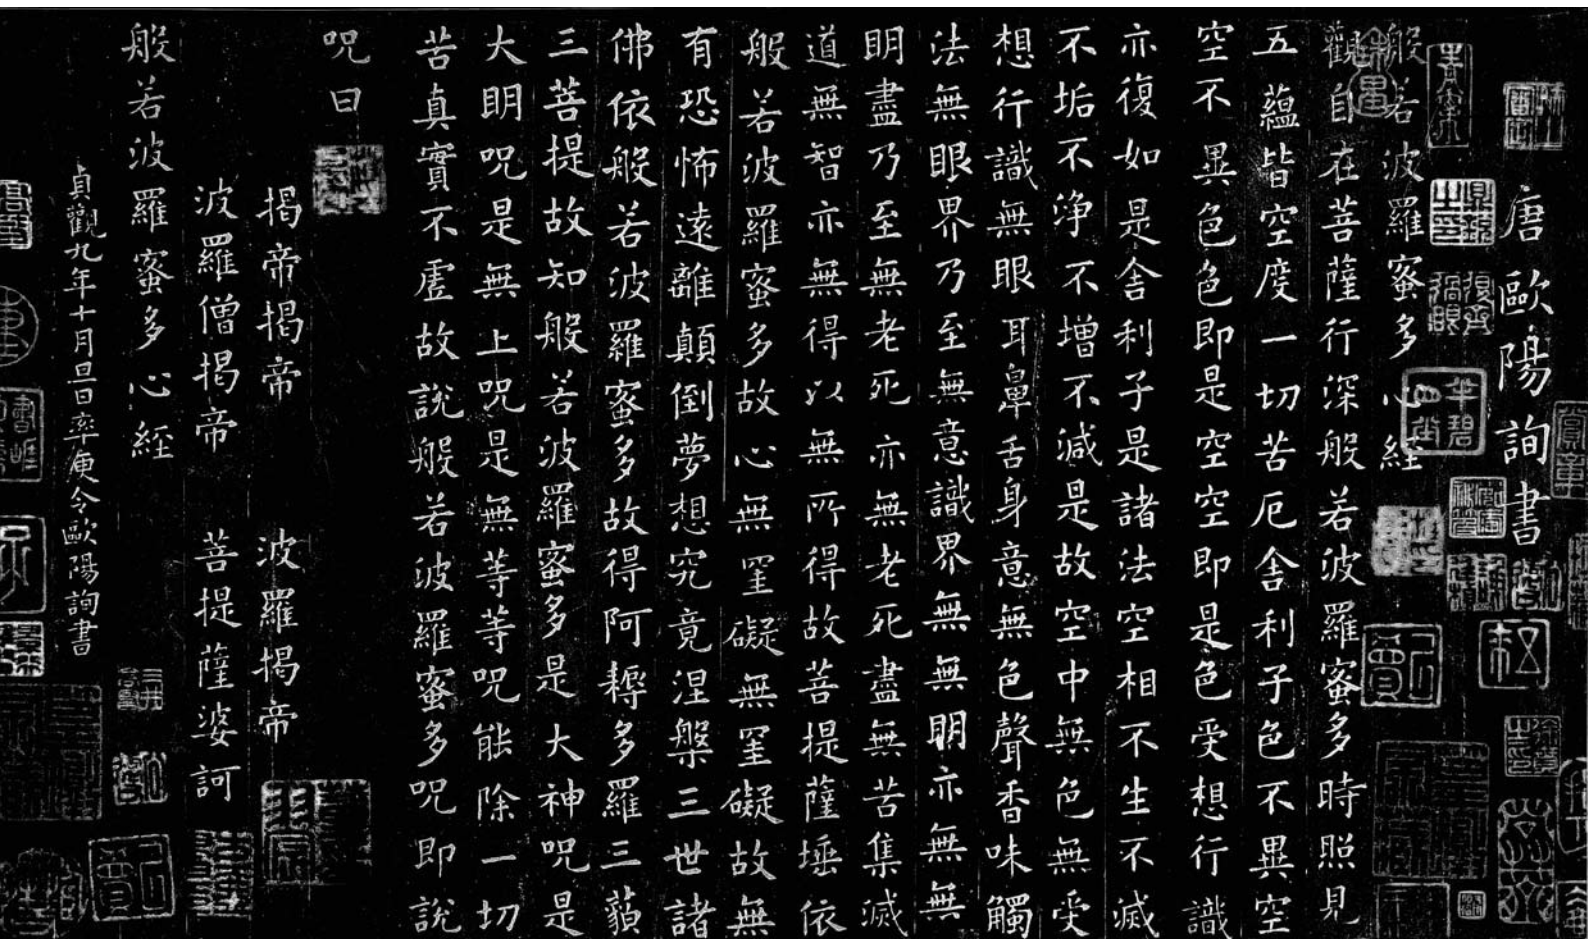 唐歐陽詢書
般若波羅蜜多心経
觀自在菩薩行深般若波羅蜜多時照見
五蘊皆空度一切苦厄舍利子色不異空
空不異色色即是空空即是色受想行識
亦復如是舍利子是諸法空相不生不滅
不垢不淨不增不減是故空中無色無受
想行識無眼耳鼻舌身意無色聲香味觸
法無眼界乃至無意識界無無明亦無無
明盡乃至無老死亦無老死盡無苦集滅
道無智亦無得以無所得故菩提薩埵依
般若波羅蜜多故心無罣礙無罣礙故無
有恐怖遠離顛倒夢想究竟涅槃三世諸
佛依般若波羅蜜多故得阿耨多羅三藐
三菩提故知般若波羅蜜多是大神咒是
大明咒是無上咒是無等等咒能除一切
苦真實不虛故說般若波羅蜜多咒即說
咒曰
揭帝揭帝 波羅揭帝
波羅僧揭帝 菩提薩婆訶
般若波羅蜜多心経
貞觀九年十月旦日率更令歐陽詢書